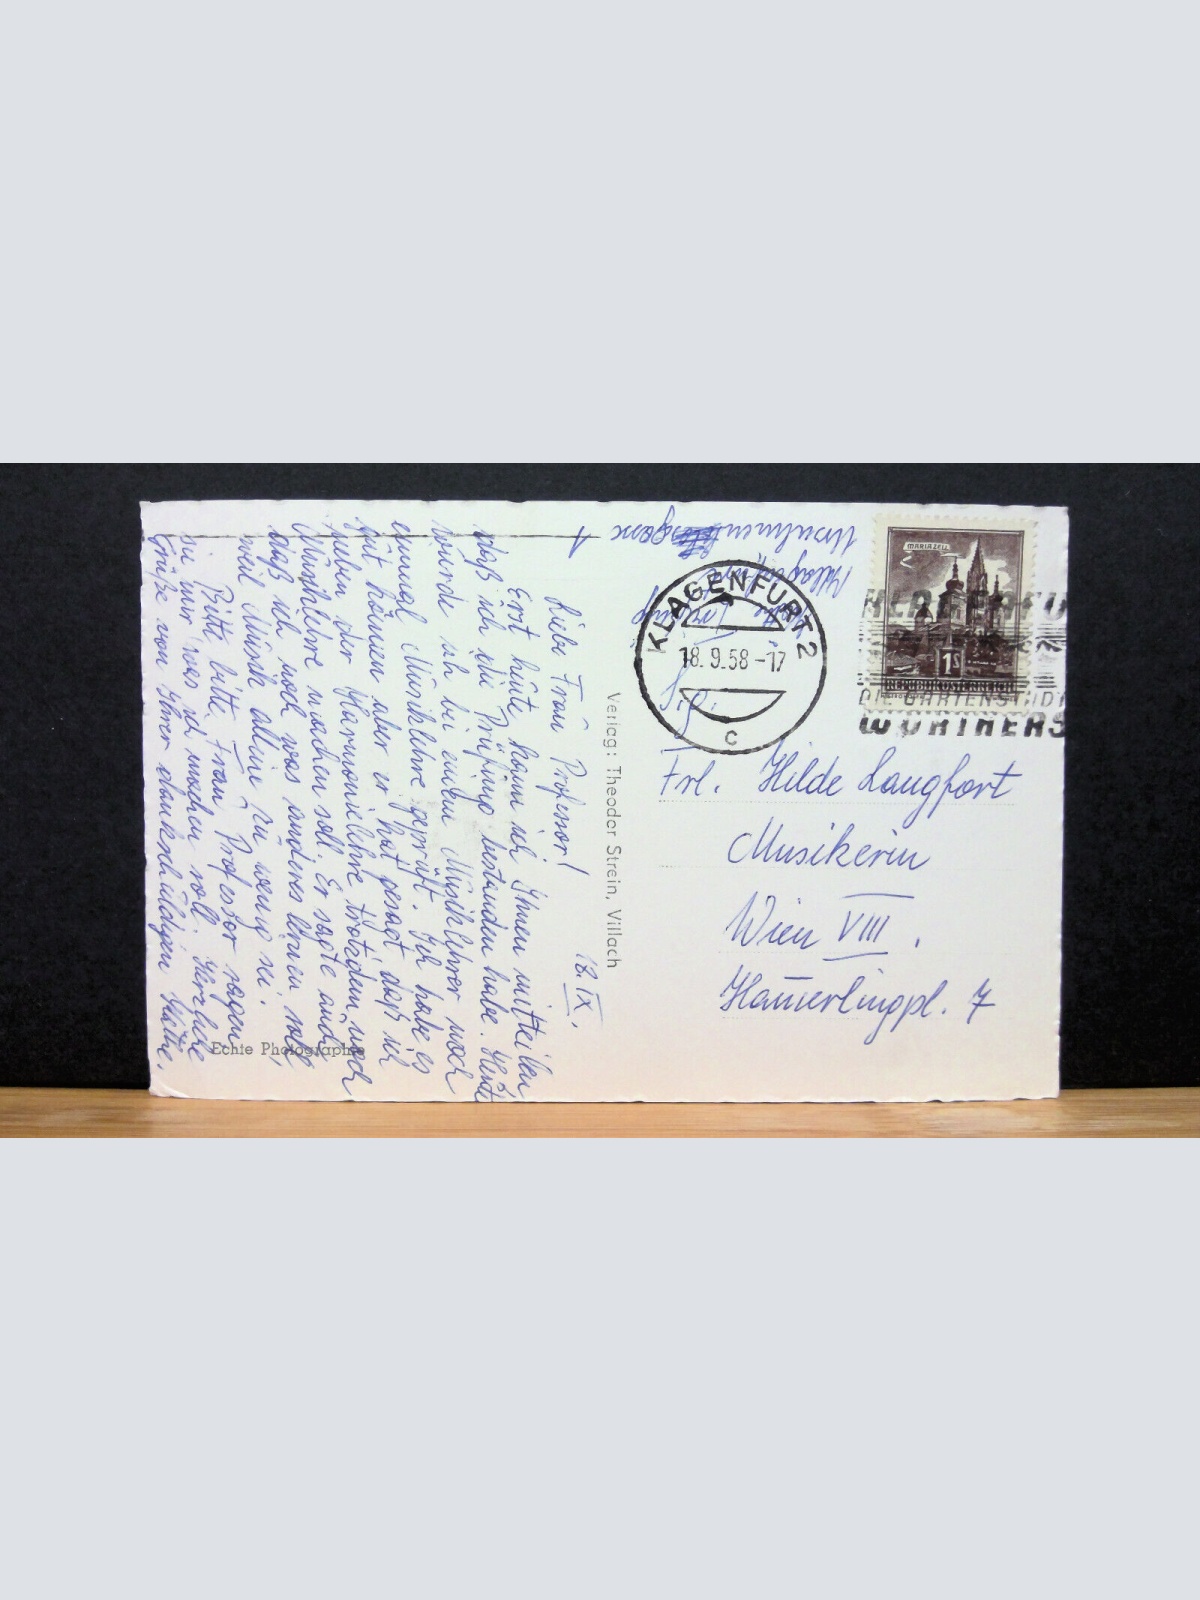 18. IX.
Liebe Frau Professor!
Erst heute kann ich Ihnen mitteilen
daß ich die Prüfung bestanden habe. Heute
wurde ich bei einem Musiklehrer noch
einmal Musiklehre geprüft. Ich habe es
gut können aber er hat gesagt, daß ich
neben der Harmonielehre trotzdem noch
Musiklehre machen soll. Er sagte auch
daß ich noch was anderes lernen soll,
weil Musik alleine zu wenig sei.
Bitte bitte Frau Professor sagen
sie mir was ich machen soll. Herzliche
Grüße von Ihrer dankschuldigen
Echte Photographie
Verlag: Theodor Strein, Villach
Klagenfurt
Ursulinengasse
1
MARIAZELL
1S
REPUBLIK ÖSTERREICH
KLAGENFURT 2
18.9.58-17
C
DIE GARTENSTADT
WÖRTHERS
Frl. Hilde Langfort
Musikerin
Wien VIII.
Hamerlingpl. 7